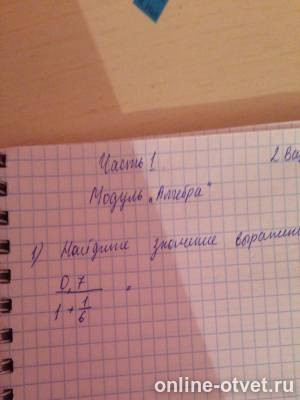 Часть 1
2 Ва
Модуль „Алгебра"
1) Найдите значение выражен
0,7
1 + 1/6
online-otvet.ru